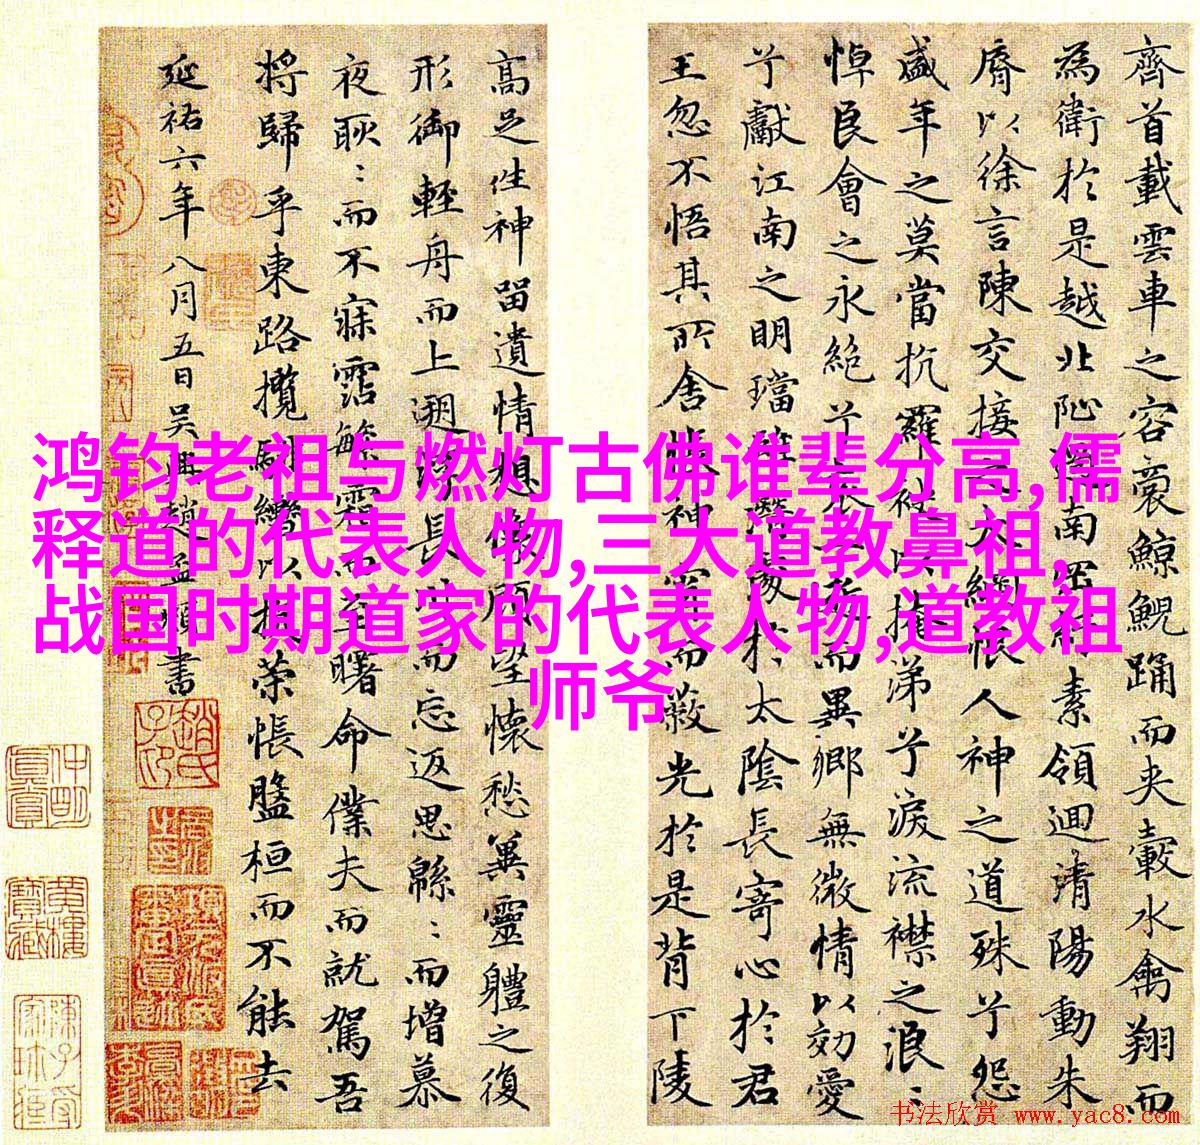 齊首載雲車之容裔鯨鯢踊而夾轂水禽翔而
為衛於是越北沚過南岡紆素領迴清陽動朱
脣以徐言陳交接之大綱恨人神之道殊兮怨
盛年之莫當抗羅袂以掩涕兮淚流襟之浪:
悼良會之永絕兮哀一逝而異鄉無微情以効愛
兮獻江南之明璫雖潛處於太陰長寄心於君
王忽不悟其所舍悵神宵而蔽光於是背下陵
高足往神留遺情想像顧望懷愁冀靈體之復
形御輕舟而上遡浮長川而忘返思緜:而增慕
夜耿:而不寐霑繁霜而至曙命僕夫而就駕吾
將歸乎東路攬騑轡以抗策悵盤桓而不能去
延祐六年八月五日吴興趙孟頫書
鸿钧老祖与燃灯古佛谁辈分高,儒
释道的代表人物,三大道教鼻祖,
战国时期道家的代表人物,道教祖
师爷
趙氏子印
书法欣赏 www.yac8.com